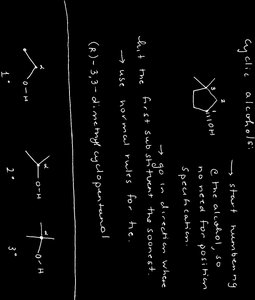 Cyclic alcohols:
→ start numbering
@ the alcohol, so
no need for position
specification.
3
2
1
OH
→ go in direction where
hit the first substituent the soonest.
→ use normal rules for tie.
(R)-3,3-dimethylcyclopentanol
O-H
O-H
O-H
1°
2°
3°